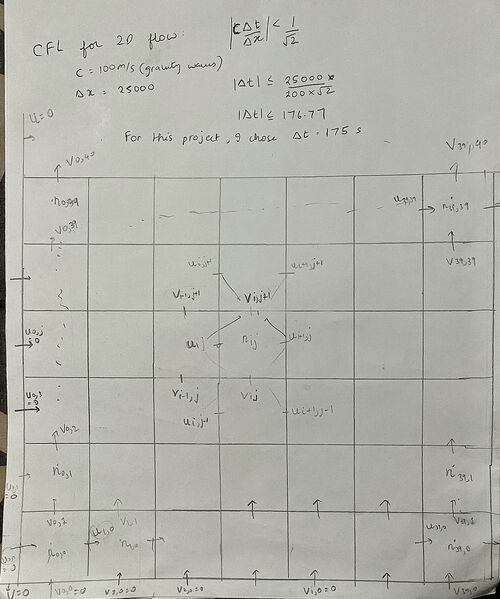 CFL for 2D flow: |CΔt/Δx| < 1/√2
C = 100m/s (gravity waves)
Δx = 25000
|Δt| ≤ 25000 / 200×√2
|Δt| ≤ 176.77
For this project, I chose Δt = 175 s
u=0
V0,40
V39,40
n0,39
u39,39
n39,39
V0,39
V39,39
ui,j+1
ui+1,j+1
Vi-1,j+1
Vi,j+1
u0,j =0
uij
nij
ui+1,j
u0,3 =0
Vi-1,j
Vij
ui,j-1
ui+1,j-1
V0,2
n0,1
n39,1
V0,1
u1,0
V1,1
u39,0
V39,1
n0,0
n1,0
n39,0
V0,0=0
V1,0=0
V2,0=0
Vi,0=0